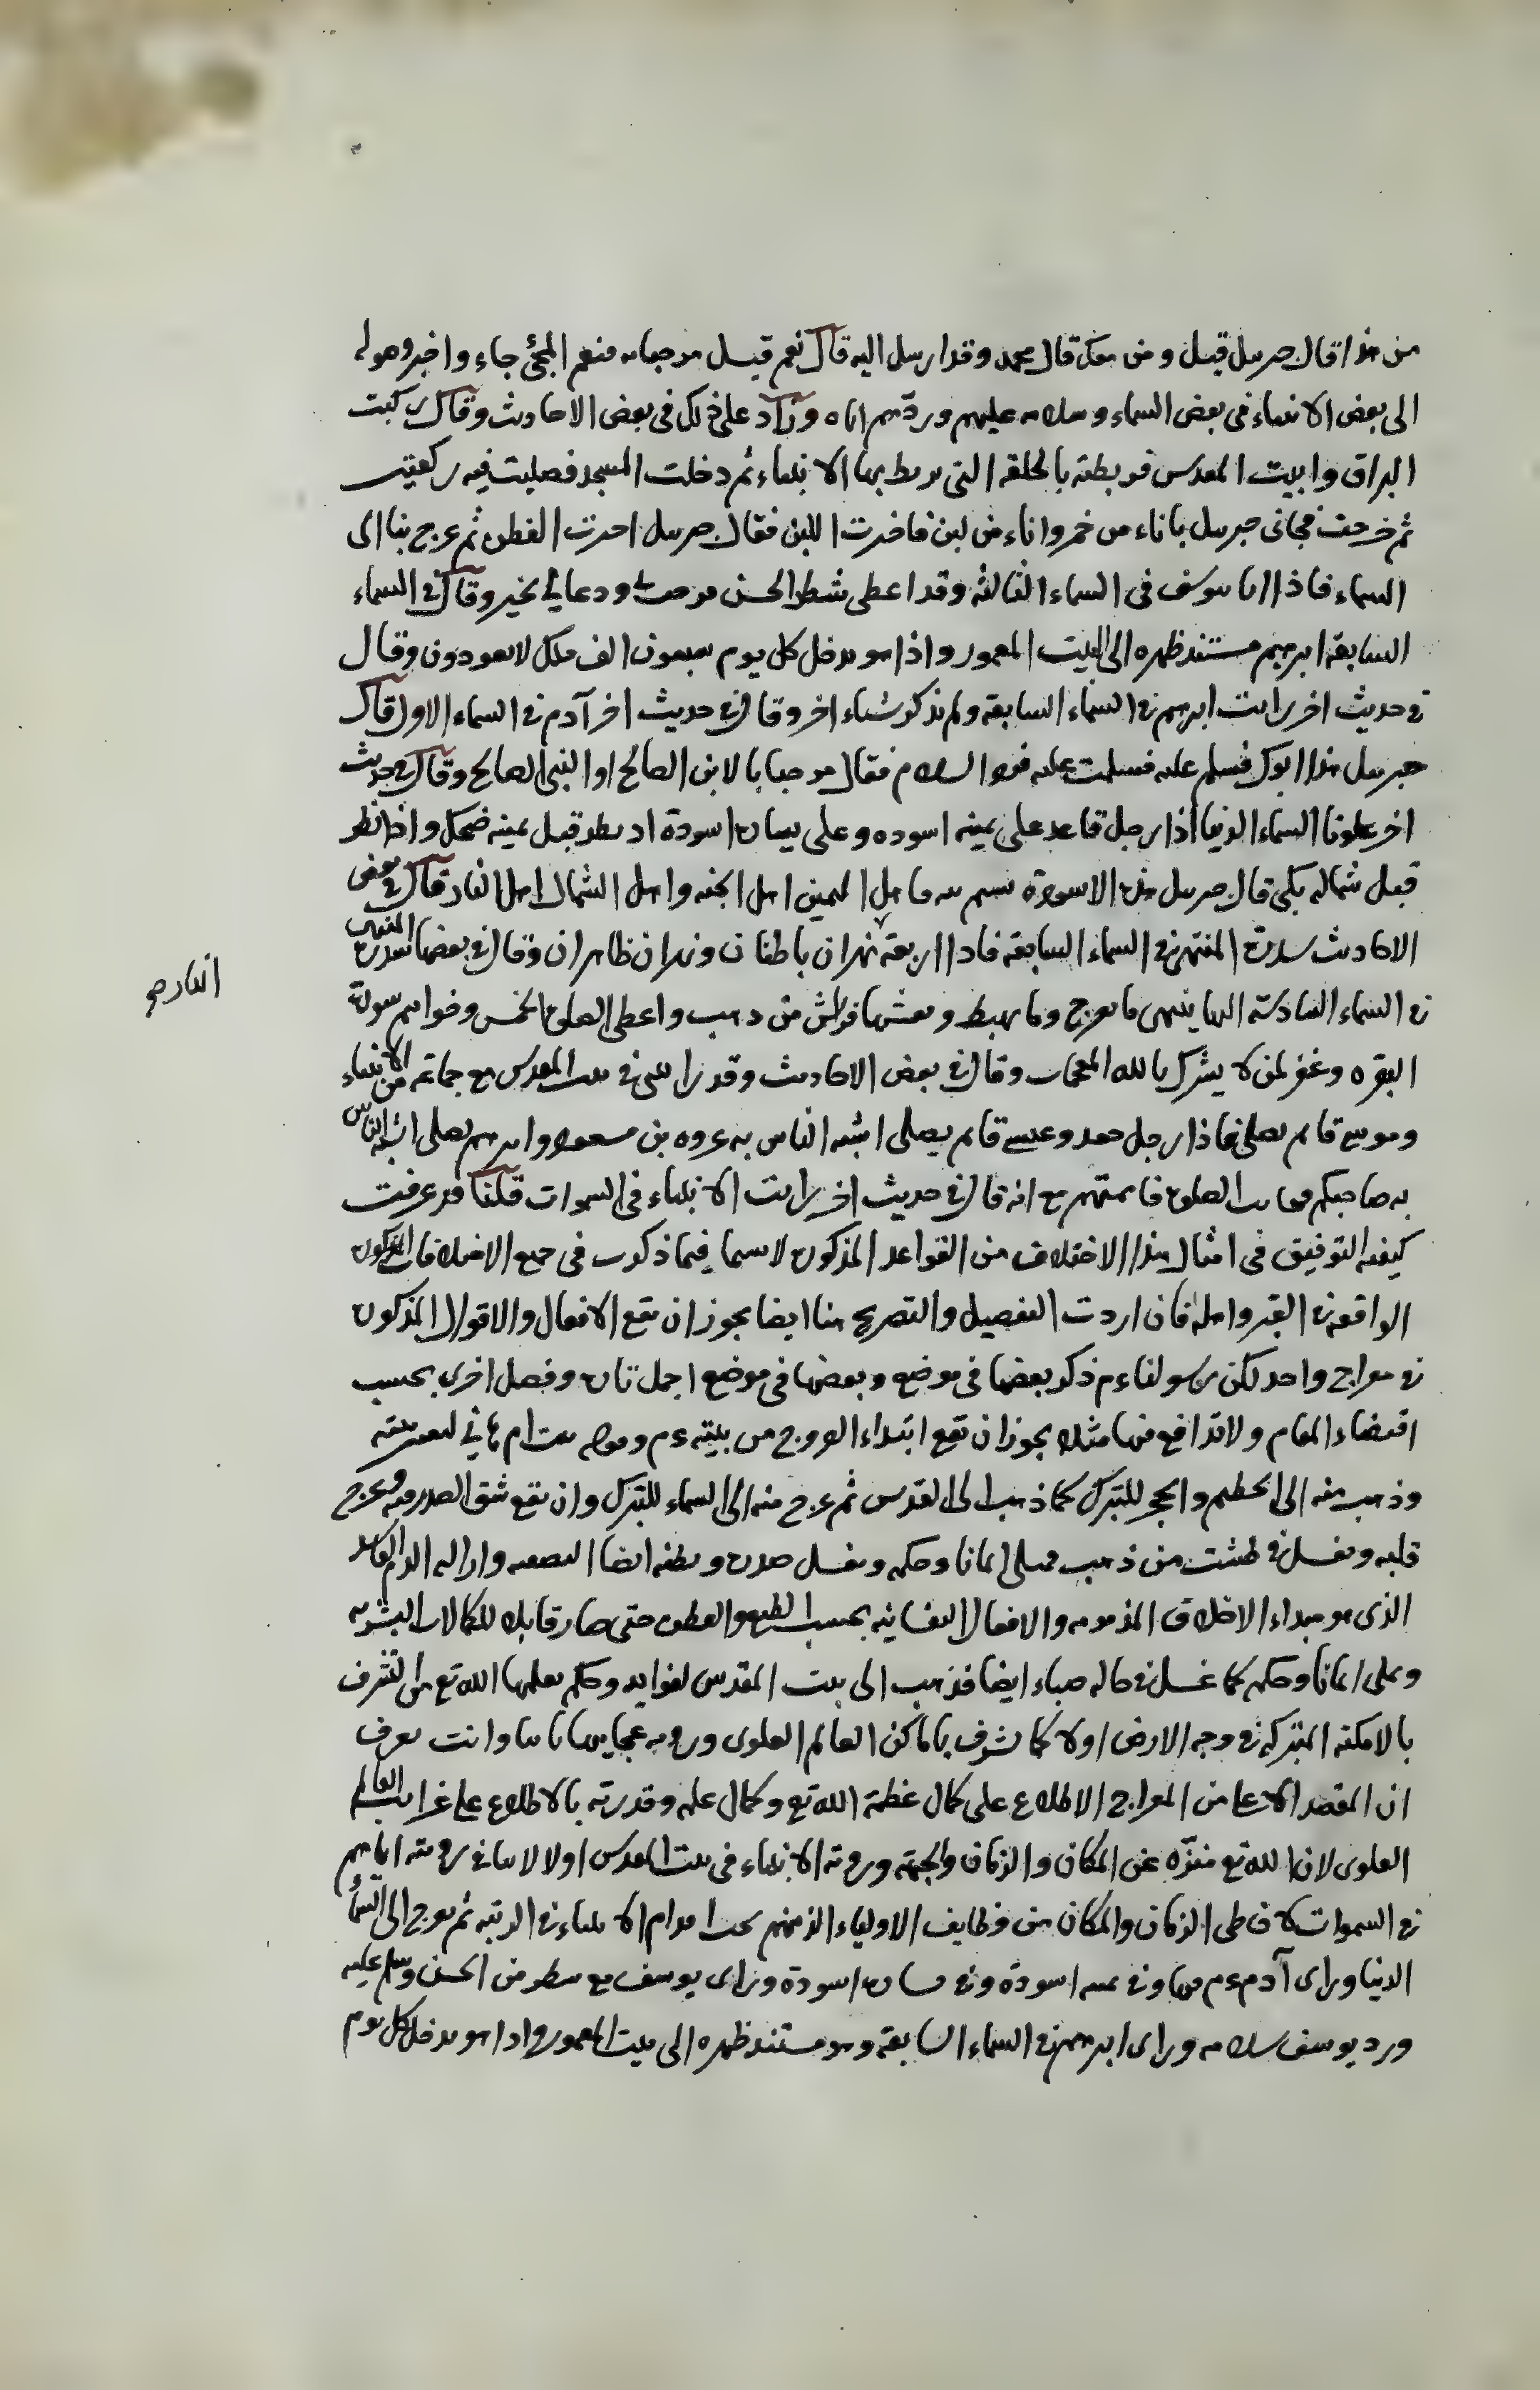 من هذا قال جبريل قيل ومن معك قال محمد وقد ارسل اليه قال نعم قيل مرحبا به فنعم المجئ جاء واخبر وصوله
الى بعض الانبياء في بعض السماء وسلامه عليهم وردهم اياه وزاد على ذلك في بعض الاحاديث وقال ركبت
البراق واتيت المقدس فربطته بالحلقة التي يربط بها الانبياء ثم دخلت المسجد فصليت فيه ركعتين
ثم خرجت فجاني جبريل باناء من خمر واناء من لبن فاخترت اللبن فقال جبريل اخترت الفطرة ثم عرج بنا الى
السماء فاذا انا بيوسف في السماء الثالثة وقد اعطى شطر الحسن فرحب ودعا لي بخير وقال في السماء
السابعة ابرهيم مستند ظهره الى البيت المعمور واذا هو يدخل كل يوم سبعون الف ملك لا يعودون وقال
في حديث اخر رايت ابرهيم في السماء السابعة ولم يذكر شيئا اخر وقال في حديث اخر آدم في السماء الاول قال
جبريل هذا ابوك فسلم عليه فسلمت عليه فرد السلام فقال مرحبا بالابن الصالح او النبي الصالح وقال في حديث
اخر علونا السماء الدنيا اذا رجل قاعد على يمينه اسوده وعلى يساره اسودة اذ نظر قبل يمينه ضحك واذا نظر
قبل شماله بكى قال جبريل هذه الاسودة نسم بنيه فاهل اليمين اهل الجنه واهل الشمال اهل النار قال في بعض
الاحاديث سدرة المنتهى في السماء السابعة فاذا اربعة نهران باطنان ونهران ظاهران وقال في بعضها سدرة المنتهى
في السماء السادسة اليها ينتهى ما يعرج وما يهبط ويغشيها فراش من ذهب واعطى الصلوة الخمس وخواتيم سورة
البقره وغفر لمن لا يشرك بالله المقحمات وقال في بعض الاحاديث وقد رايتني في بيت المقدس مع جماعة من الانبياء
وموسى قائم يصلي فاذا رجل جعد وعيسى قائم يصلي اشبه الناس به عروه بن مسعود وابرهيم يصلي اشبه الناس
به صاحبكم فحانت الصلوة فاممتهم مع انه قال في حديث اخر رايت الانبياء في السموات قلنا قد عرفت
كيفية التوفيق في امثال هذا الاختلاف من القواعد المذكورة لا سيما فيما ذكرت في جميع الاختلافات المذكورة
الواقعة في القبر واهله فان اردت التفصيل والتصريح هنا ايضا يجوز ان تقع الافعال والاقوال المذكورة
في معراج واحد لكن رسولنا عم ذكر بعضها في موضع وبعضها في موضع اجمل تارة وفصل اخرى بحسب
اقتضاء المقام ولا تدافع فيها مثلا يجوز ان تقع ابتداء العروج من بيته عم وهو بيت ام هاني
وذهب منه الى الحطيم والحجر للتبرك كما ذهب الى القدس ثم عرج منه الى السماء للتبرك وان تقع شق الصدر فيه وتخرج
قلبه ويغسل في طشت من ذهب مملى ايمانا وحكمه ويغسل صدره وبطنه ايضا وازاله الدم الفاسد
الذي هو مبداء الاخلاق المذمومه والافعال النفسانيه بحسب الطبع والفطره حتى صار قابلا للكمالات البشريه
وملى ايمانا وحكمه كما غسل في حاله صباه ايضا فذهب الى بيت المقدس لفوايد وحكم يعلمها الله تع من التشرف
بالامكنة المتبركه في وجه الارض اولا كما تشرف باماكن العالم العلوى ورويه عجايبها ثانيا وانت تعرف
ان المقصد الاعلى من المعراج الاطلاع على كمال عظمة الله تع وكمال علمه وقدرته بالاطلاع على غرائب العالم
العلوى لان الله تع منزه عن المكان والزمان والجهة ورويته الانبياء في بيت المقدس اولا لا ينافي رويته اياهم
في السموات لان طى الزمان والمكان من وظايف الاولياء الذين هم تحت اقدام الانبياء في الرتبة ثم عرج الى السماء
الدنيا وراى آدم عم فيها وفي يمينه اسودة وفي يساره اسودة وراى يوسف مع شطر من الحسن وسلم عليه
ورد يوسف سلامه وراى ابرهيم في السماء السابعة وهو مستند ظهره الى بيت المعمور واذا هو يدخل كل يوم